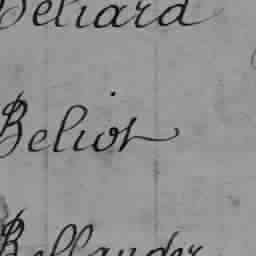 Beliard
Beliot
Bellander